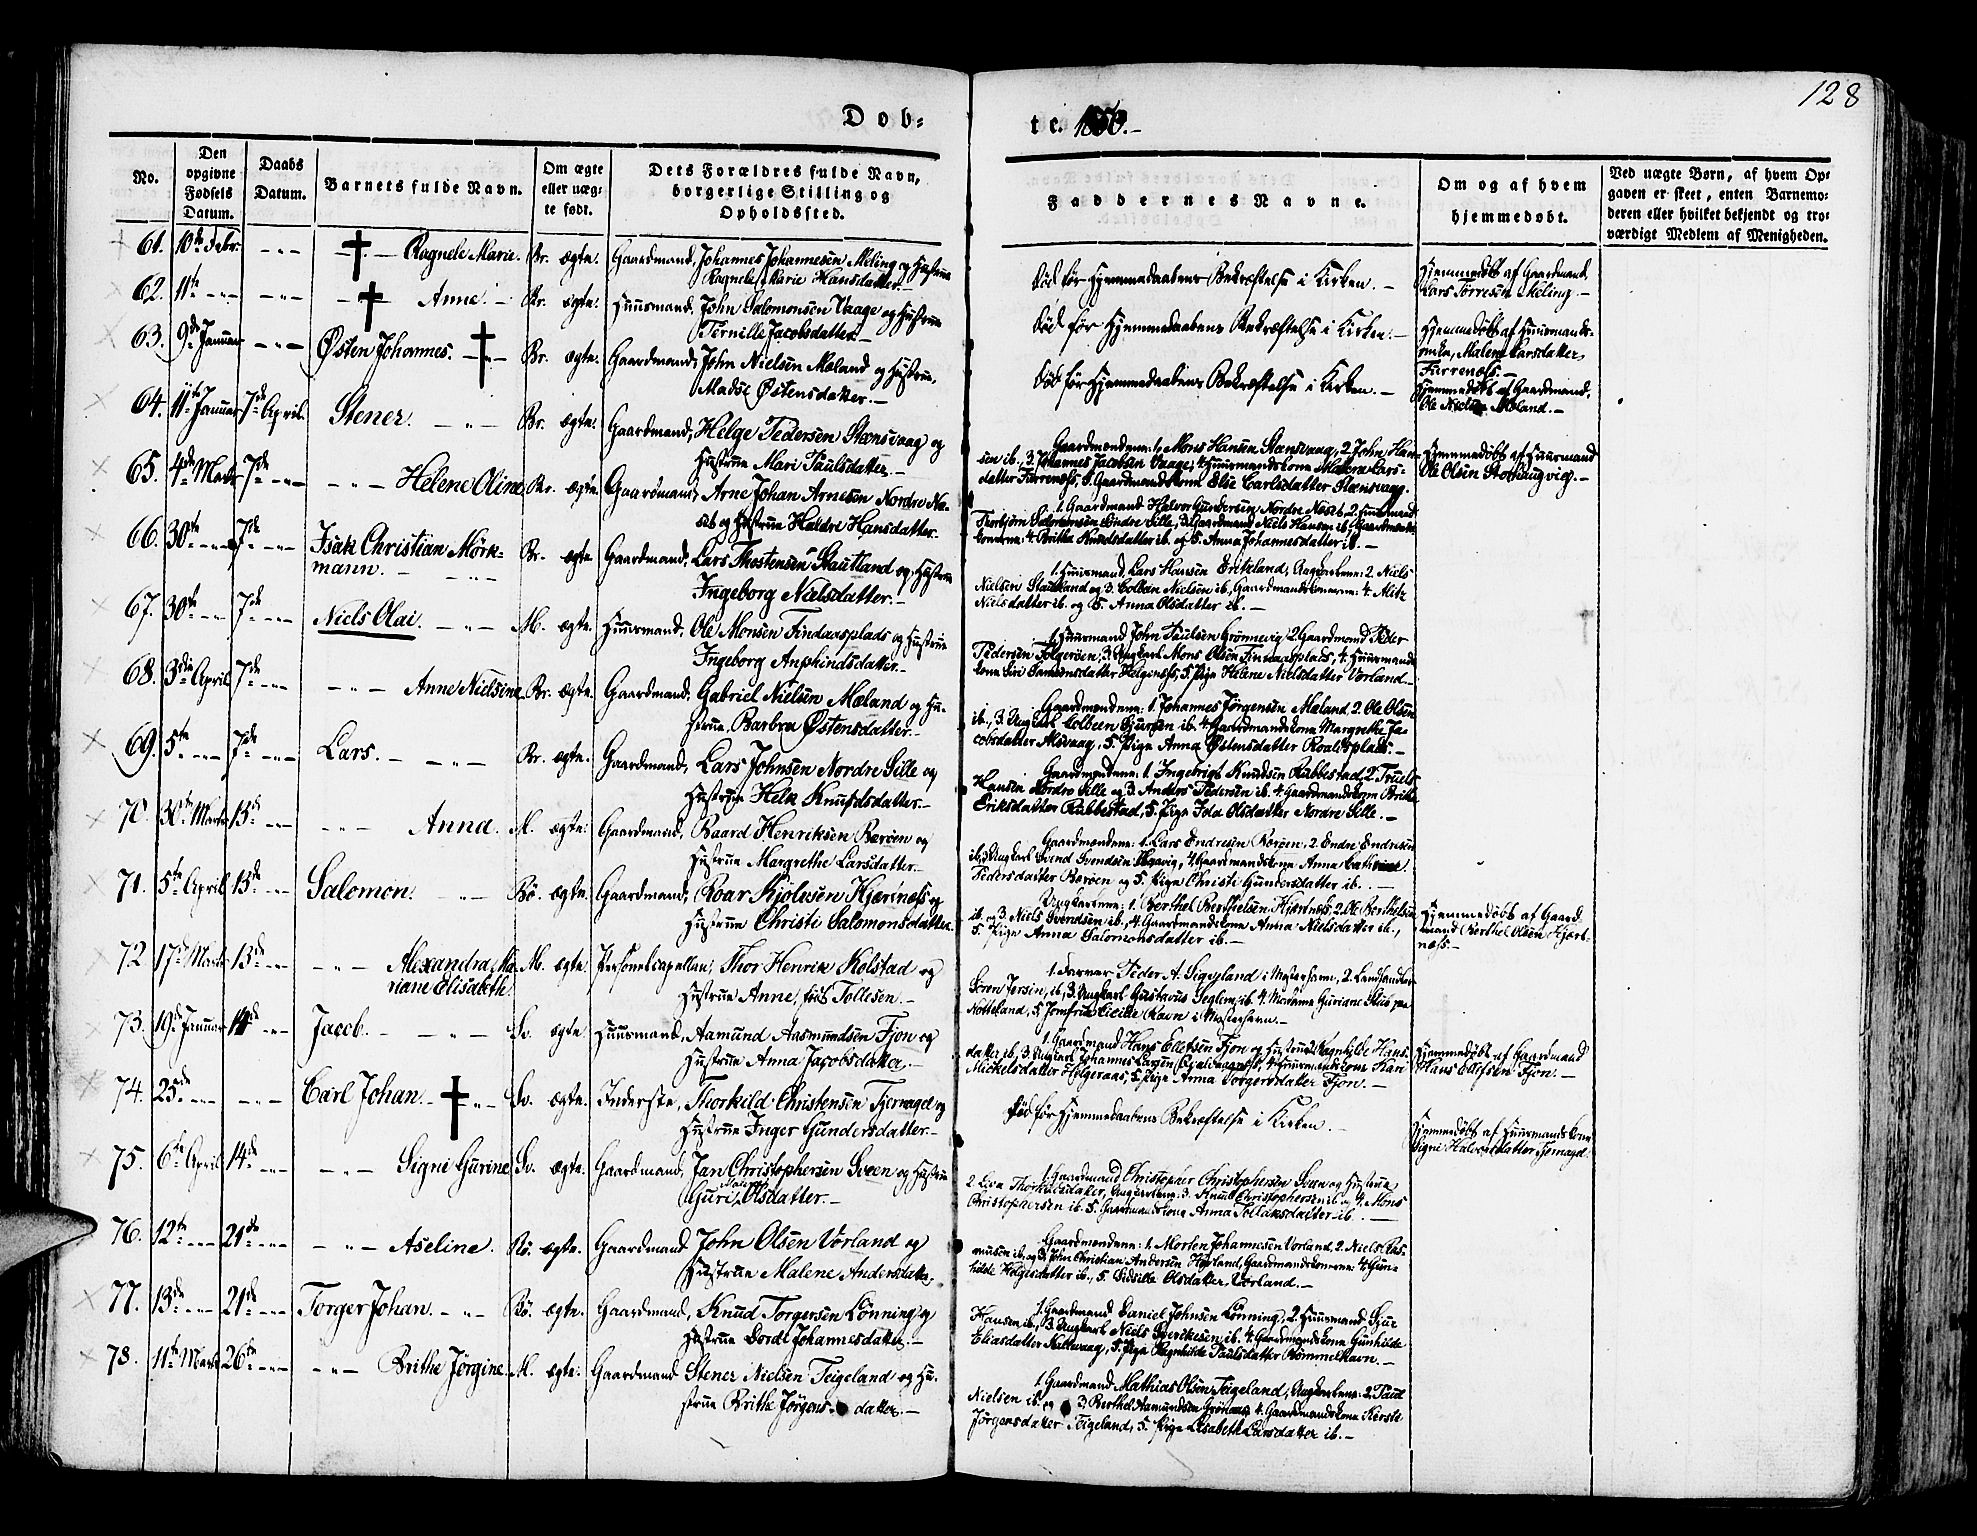 128
Dob-
te. 1850.-
No.
Den opgivne Fødsels Datum.
Daabs Datum.
Barnets fulde Navn.
Om ægte eller uægte født.
Dets Forældres fulde Navn, borgerlige Stilling og Opholdssted.
Faddernes Navne.
Om og af hvem hjemmedøbt.
Ved uægte Børn, af hvem Opgaven er skeet, enten Barnemoderen eller hvilket bekjendt og troværdigt Medlem af Menigheden.
61. 10de Febr. Ragnele Marie. Br. ægte. Gaardmand, Johannes Johannesen Meling og Hustrue
Ragnele Marie Hansdatter.
Død før Hjemmedaabens Bekræftelse i Kirken. -
Hjemmedøbt af Gaardmand
Lars Torresen Meling. -
62. 11te Anne. Br. ægte. Huusmand, John Salomonsen Vaage og Hustrue
Pernille Jacobsdatter -
Død før Hjemmedaabens Bekræftelse i Kirken. -
Hjemmedøbt af Huusmands-
kone, Malene Larsdatter,
Furrenæs. -
63. 9de Januar Østen Johannes. Br. ægte. Gaardmand, John Nielsen Mæland og Hustrue,
Madse Østensdatter. -
Død før Hjemmedaabens Bekræftelse i Kirken. -
Hjemmedøbt af Gaardmand,
Ole Nielsen Mæland. -
64. 11te Januar 7de April. Stener. Br. ægte. Gaardmand, Helge Pedersen Stensvaag og
Hustrue Mari Paulsdatter. -
Gaardmændene: 1. Mons Hansen Stensvaag, 2. John Han-
sen ib., 3. Johannes Jacobsen Vaage, 4. Huusmandskone Malena Lars-
datter Furrenæss, 5. Gaardmandskone Elie Carlsdatter Stensvaag.
Hjemmedøbt af Huusmand
Ole Olsen Stokhaugvig. -
65. 4de Marts 7de Helene Oline Br. ægte. Gaardmand, Arne Johan Arnesen Nordre Næ-
seb og Hustrue Haldre Hansdatter.
1. Gaardmand Halvor Gundersen Nordre Næseb, 2. Huusmand
66. 30te 7de Isak Christian Mørk-
mann. - Br. ægte Gaardmand, Lars Thostensen Stautland og Hustrue
Ingeborg Nielsdatter. -
1. Huusmand Lars Hansen Eriksland, Ungkarlene: 2. Niels
Nielsen Stautland og 3. Colban Nielsen ib, Gaardmandskonerne: 4. Alitz
Nielsdatter ib. og 5. Anna Olsdatter ib. -
67. 30te 7de Niels Olai. M. ægte. Huusmand, Ole Monsen Findaasplads og Hustrue
Ingeborg
1. Huusmand John Paulsen Grønnevig 2. Gaardmand Peder
Pedersen Folgerøen, 3. Ungkarl Mons Olsen Findaasplads, 4. Huusmands
kone Siri Samsonsdatter Helgenæss, 5. Pige Helene Nielsdatter Vorland. -
68. 3die April 7de Anne Nielsine Br. ægte. Gaardmand, Gabriel Nielsen Mæland og Hu-
strue, Barbra Østensdatter. -
Gaardmændene: 1. Johannes Jørgensen Mæland, 2. Ole Olsen
ib., 3. Ungkarl Colbeen Sjursen ib. 4. Gaardmandskone Margrethe Ja-
cobsdatter Alsvaag, 5. Pige Anna Østensdatter Roaldsplads. -
69. 5te 7de Lars. - Br. ægte. Gaardmand, Lars Johnsen Nordre Sille og
Hustrue Helæ Knudsdatter. -
Gaardmændene: 1. Ingebrigt Knudsen Rabbestad, 2. Truels
Hansen Nordre Sille og 3. Anders Pedersen ib. 4. Gaardmandskone Brithe
Eriksdatter Rabbestad, 5. Pige Ida Olsdatter Nordre Sille. -
70. 30te Marts 13de Anna. M. ægte. Gaardmand, Baard Henriksen Bærøen og
Hustrue Margrethe Larsdatter. -
Gaardmændene: 1. Lars Endresen Bærøen, 2. Endre Endresen
ib, 3. Ungkarl Svend Svendsen, 4. Gaardmandskone Anna Cathrine
Pedersdatter Bærøen og 5. Pige Christi Gundersdatter ib. -
71. 5te April 13de Salomon. Bø. ægte. Gaardmand, Roar Kjølusen Hjærtnæss og
Hustrue Christi Salomonsdatter.
Ungkarlene: 1. Berthel Berthelsen Hjærtnæss, 2. Ole Berthelsen
ib. og 3. Niels Svendsen ib., 4. Gaardmandskone Anna Nielsdatter ib.,
5. Pige Anna Salomonsdatter ib. -
Hjemmedøbt af Gaard-
mand Berthel Olsen Hjært-
næss. -
72. 17de Marts 13de Alexandra Ma-
riane Elisabeth. M. ægte. Personelcapellan, Thor Henrik Kolstad og
Hustrue Anne, født Tollesen. -
73. 19de Januar 14de Jacob. Sv. ægte Huusmand, Aamund Aasmundsen Fjon og
Hustrue Anna Jacobsdatter. -
1. Gaardmand Hans Ellefsen Fjon og Hustrue 2. Ragnhilde Hans-
Mickelsdatter, 5. Pige Anna Fjon. -
Hjemmedøbt af Gaardmand
Hans Ellefsen Fjon. -
74. 25de Carl Johan. - Sv. ægte. Inderste, Thorkild Christensen Fjernaget og
Hustrue Inger Gundersdatter. -
Død før Hjemmedaabens Bekræftelse i Kirken. -
Hjemmedøbt af Huusmandskone
Signi Halvorsdatter.
75. 6te April 14de Signi Gurine. Sv. ægte. Gaardmand, Jan Christophersen Sveen og Hustrue
Guri Olsdatter. -
1. Gaardmand Christopher Christophersen Sveen og Hustrue
2. Thorkildsdatter, Ungkarlene: 3. Knud Christophersen ib og 4. Mons
Christophersen ib. 5. Gaardmandskone Anna Tollaksdatter ib. -
76. 12te 21de Aseline. Bø. ægte. Gaardmand John Olsen Vorland og
Hustrue Malene Andersdatter. -
Gaardmændene: 1. Morten Johannesen Vorland, 2. Niels Ras-
musen ib. og 3. John Christian Andersen Hovland, Gaardmandskonerne: 4. Gun-
hilde Helgesdatter ib., 5. Sidsille Olsdatter, Vorland. -
77. 13de 21de Torger Johan. Bø. ægte. Gaardmand, Knud Torgersen Lønning og
Hustrue Dorde Johannesdatter. -
1. Gaardmand Daniel Johnsen Lønning, 2. Huusmand Sjur
Hansen ib., 3. Ungkarl Niels ib. 4. Gaardmandskone Gunhilde
Eliasdatter, 5. Pige Ragnhilde Paulsdatter Rømmelhavn. -
78. 11te Marts 26de Brithe Jørgine. M. ægte. Gaardmand Stener Nielsen Teigeland og Hu-
strue Brithe Jørgens- datter. -
1. Gaardmand Mathias Olsen Teigeland, Ungkarlene: 2. Paul
Nielsen ib. og 3. Berthel Aamundsen, 4. Gaardmandskone Kirsti
Jørgensdatter Teigeland, 5. Pige Elisabeth Larsdatter ib. -